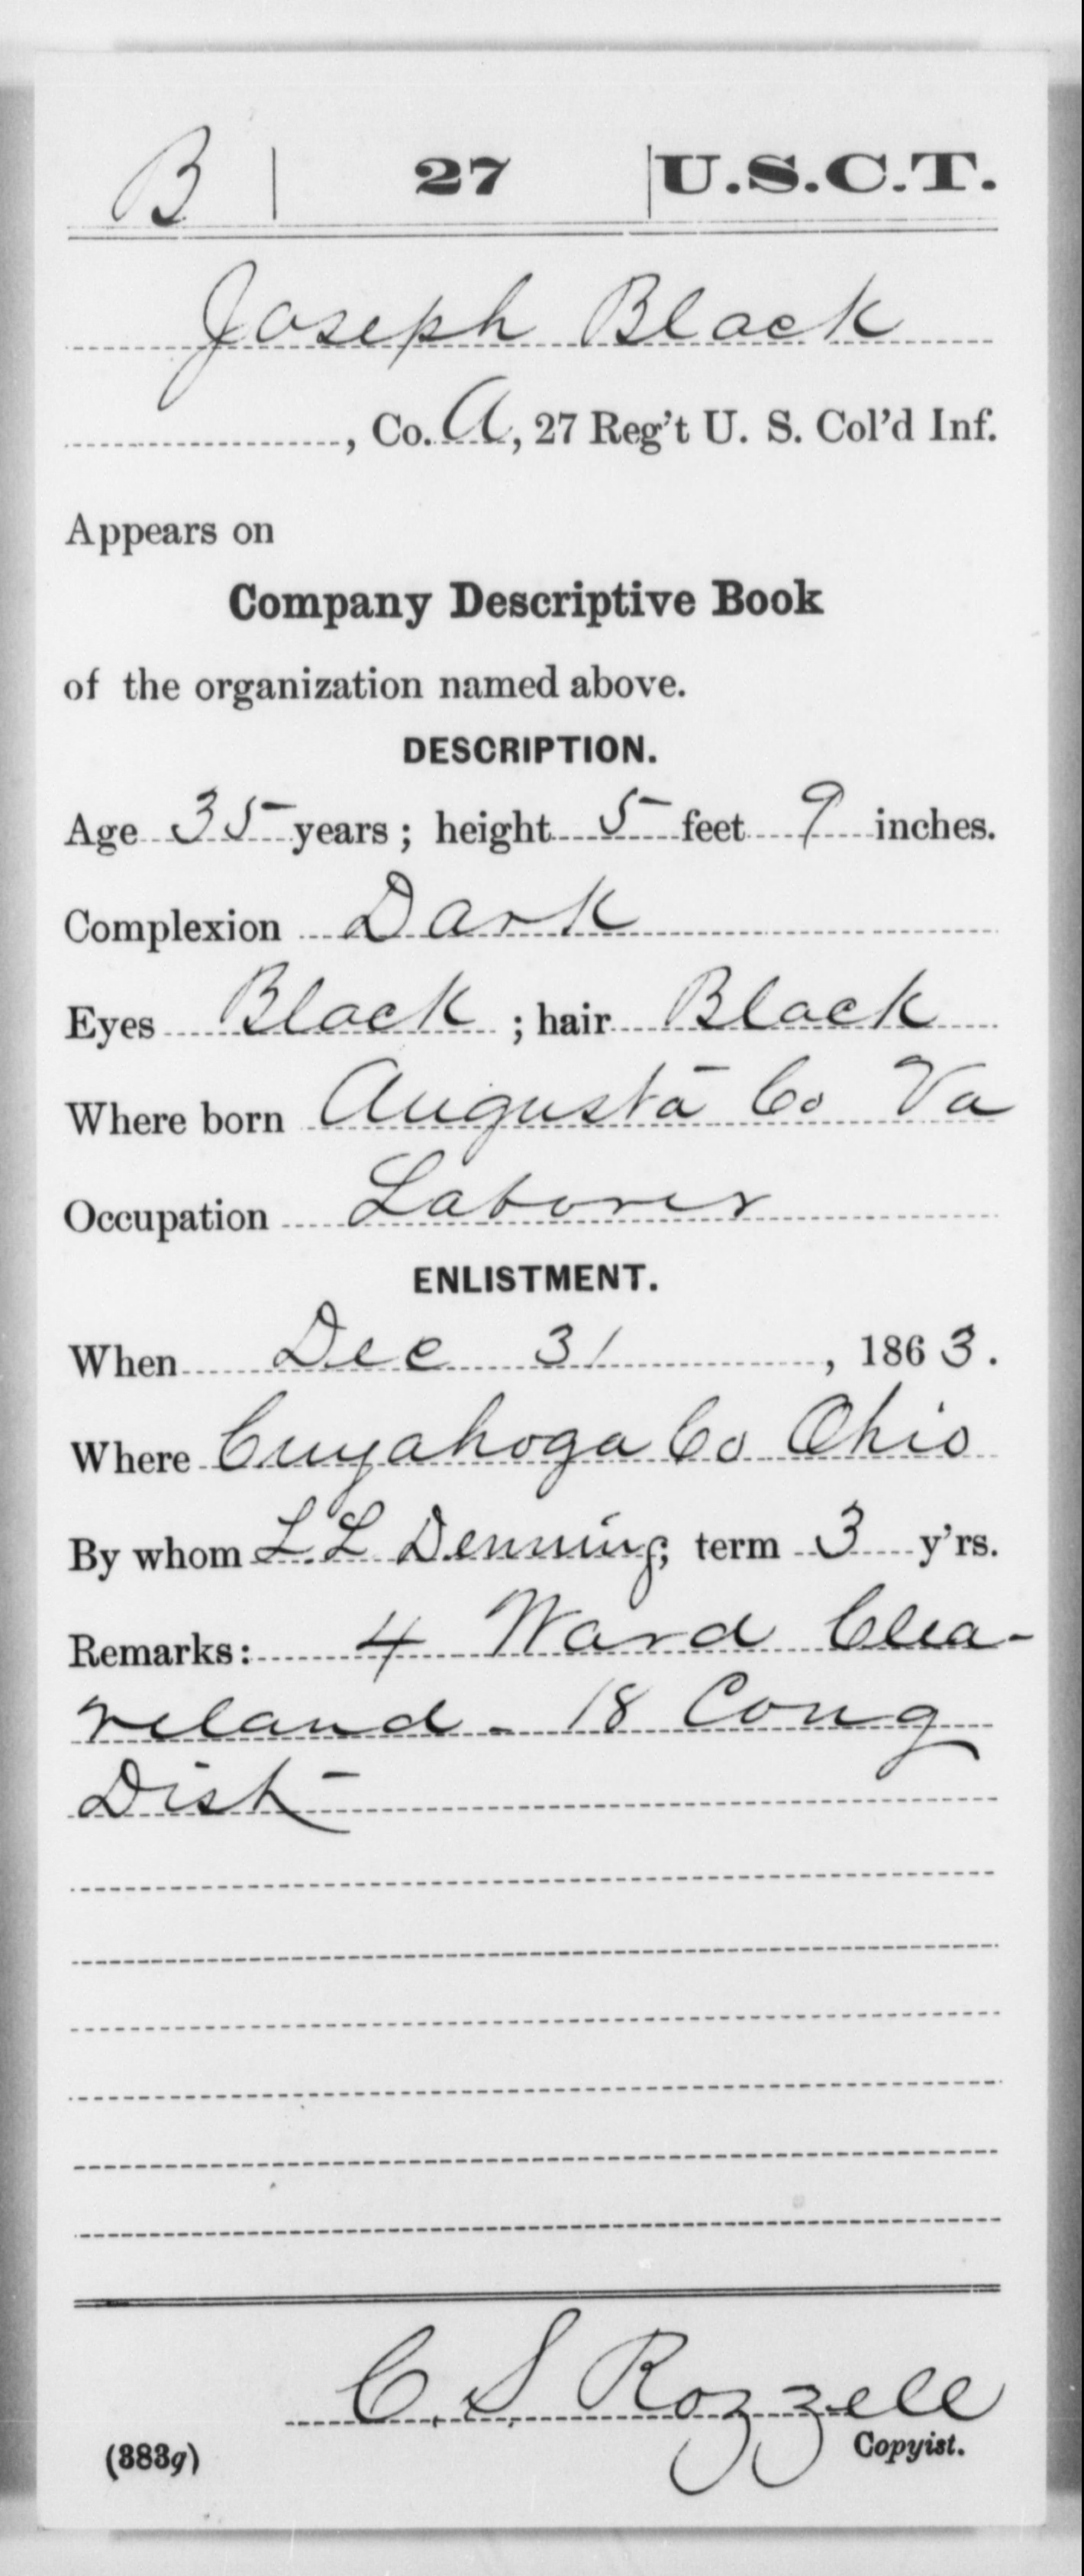 B | 27 | U.S.C.T.
Joseph Black
, Co. A, 27 Reg't U. S. Col'd Inf.
Appears on
Company Descriptive Book
of the organization named above.
DESCRIPTION.
Age 35 years; height 5 feet 9 inches.
Complexion Dark
Eyes Black; hair Black
Where born Augusta Co Va
Occupation Laborer
ENLISTMENT.
When Dec 31, 1863.
Where Cuyahoga Co Ohio
By whom L L Denning; term 3 y'rs.
Remarks: 4 Ward Clea-
veland - 18 Cong
Dist
C. S. Rozzell
(383g) Copyist.